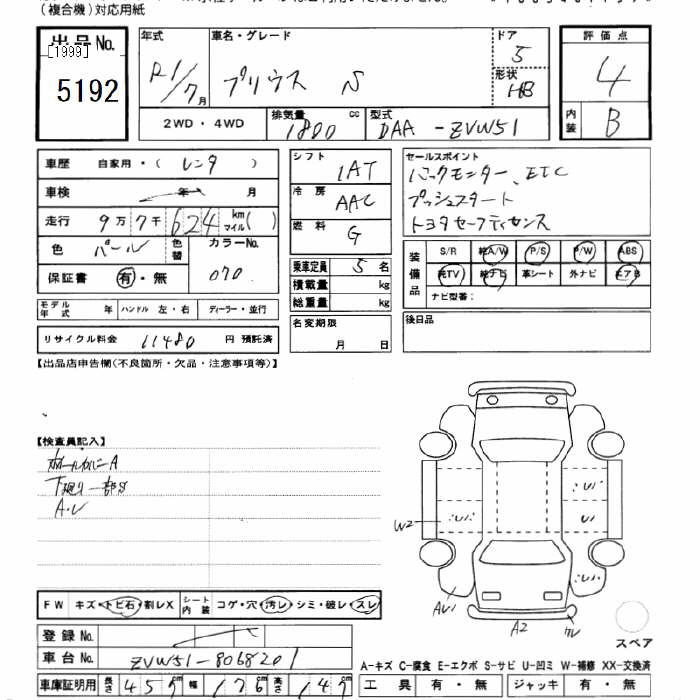 （複合機）対応用紙
出品No.
[1999]
5192
年式
R1/7月
車名・グレード
プリウス S
ドア
5
形状
HB
評価点
4
内装
B
2WD・4WD
排気量
1800 cc
型式
DAA-ZVW51
車歴 自家用・（レンタ）
車検 年 月
走行 9万7千624 km マイル（ ）
色 パール
色替
カラーNo.
070
保証書 有・無
シフト 1AT
冷房 AAC
燃料 G
乗車定員 5名
積載量 kg
総重量 kg
セールスポイント
バックモニター、ETC
プッシュスタート
トヨタセーフティセンス
装備品
S/R 純A/W P/S P/W ABS
純TV 純ナビ 革シート 外ナビ エアB
ナビ型番：
モデル年式 年 ハンドル 左・右 ディーラー・並行
リサイクル料金 11480 円 預託済
名変期限
月 日
後日品
【出品店申告欄（不良箇所・欠品・注意事項等）】
【検査員記入】
ホイールカバーA
下廻り一部サ
A・U
W2
AU1
A2
FW キズ・トビ石・割レX
シート内装 コゲ・穴・汚レ・シミ・破レ・スレ
登録No.
車台No. ZVW51-8068201
車庫証明用 長さ 457 幅 176 高さ 147
スペア
A-キズ C-腐食 E-エクボ S-サビ U-凹ミ W-補修 XX-交換済
工具 有・無 ジャッキ 有・無